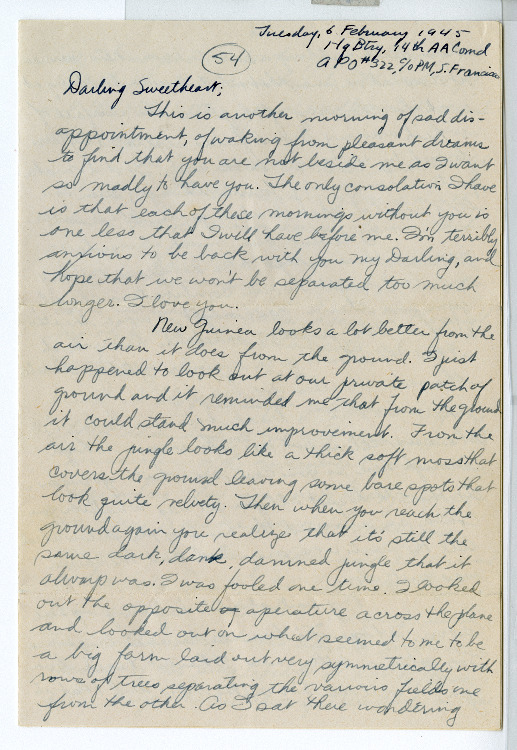 Tuesday, 6 February 1945
Hq Btry, 14th AA Comd
APO #322, c/o PM, S. Francisco
54
Darling Sweetheart;
This is another morning of sad dis-
appointment, of waking from pleasant dreams
to find that you are not beside me as I want
so madly to have you. The only consolation I have
is that each of these mornings without you is
one less that I will have before me. I'm terribly
anxious to be back with you my Darling, and
hope that we won't be separated too much
longer. I love you.
New Guinea looks a lot better from the
air than it does from the ground. I just
happened to look out at our private patch of
ground and it reminded me that from the ground
it could stand much improvement. From the
air the jungle looks like a thick soft moss that
covers the ground leaving some bare spots that
look quite velvety. Then when you reach the
ground again you realize that it's still the
same dark, dank, damned jungle that it
always was. I was fooled one time. I looked
out the opposite aperature across the plane
and looked out on what seemed to me to be
a big farm laid out very symmetrically with
rows of trees separating the various fields one
from the other. As I sat there wondering